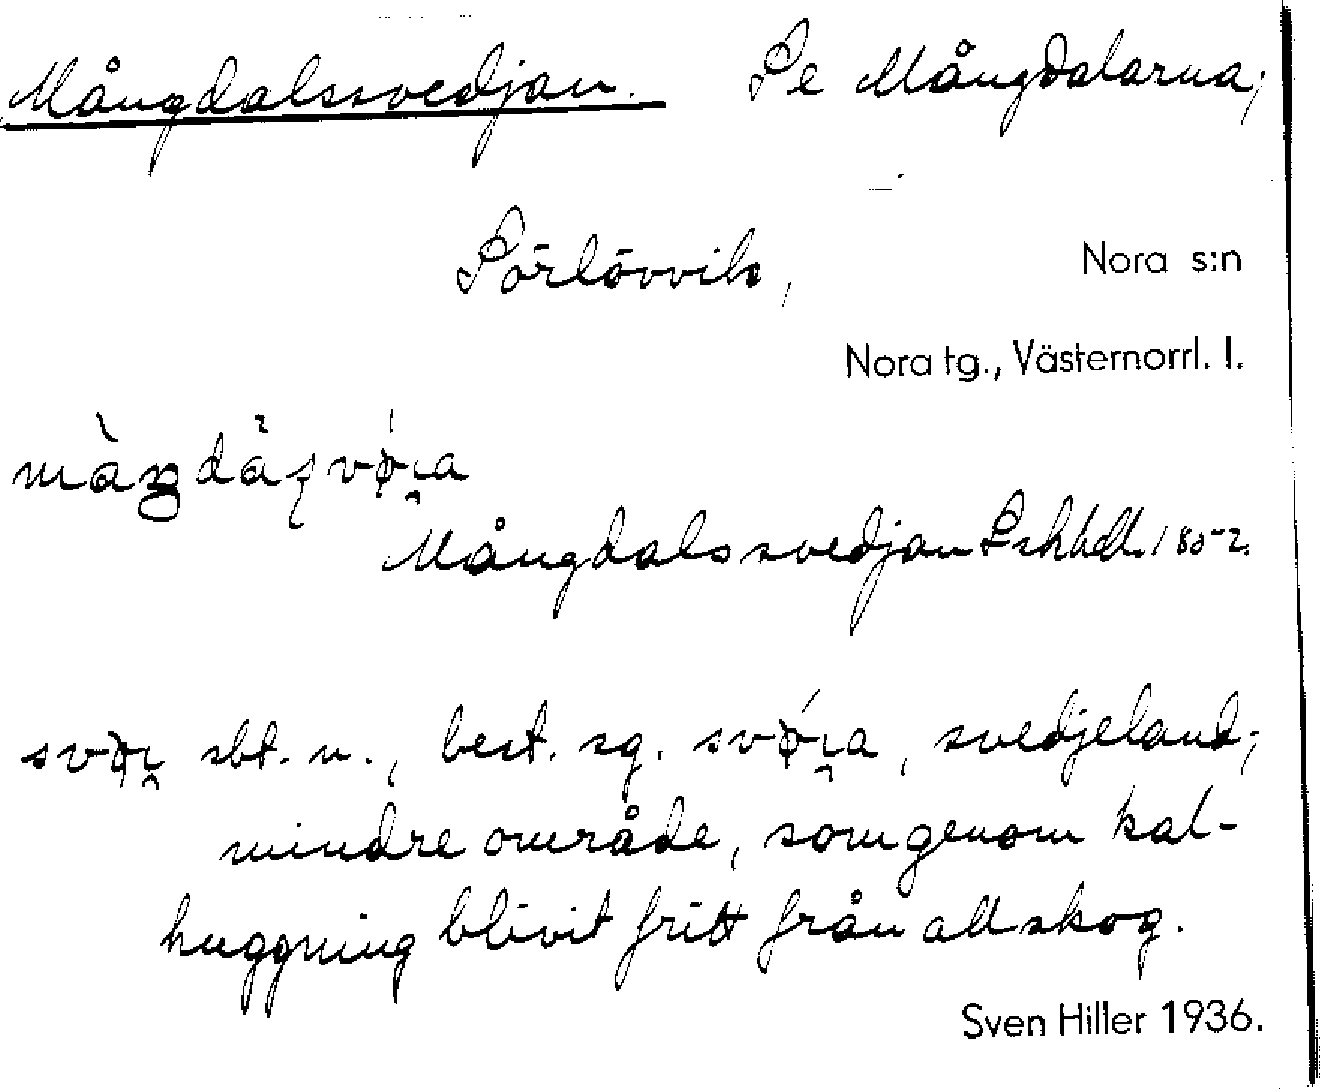 Mångdalssvedjan. Se Mångdalarna;
Sörlövvik, Nora s:n
Nora tg., Västernorrl. l.
Mångdalssvedjan Lskhdl. 1852.
sbt. n., best. sg. , svedjeland;
mindre område, som genom kal-
huggning blivit fritt från all skog.
Sven Hiller 1936.